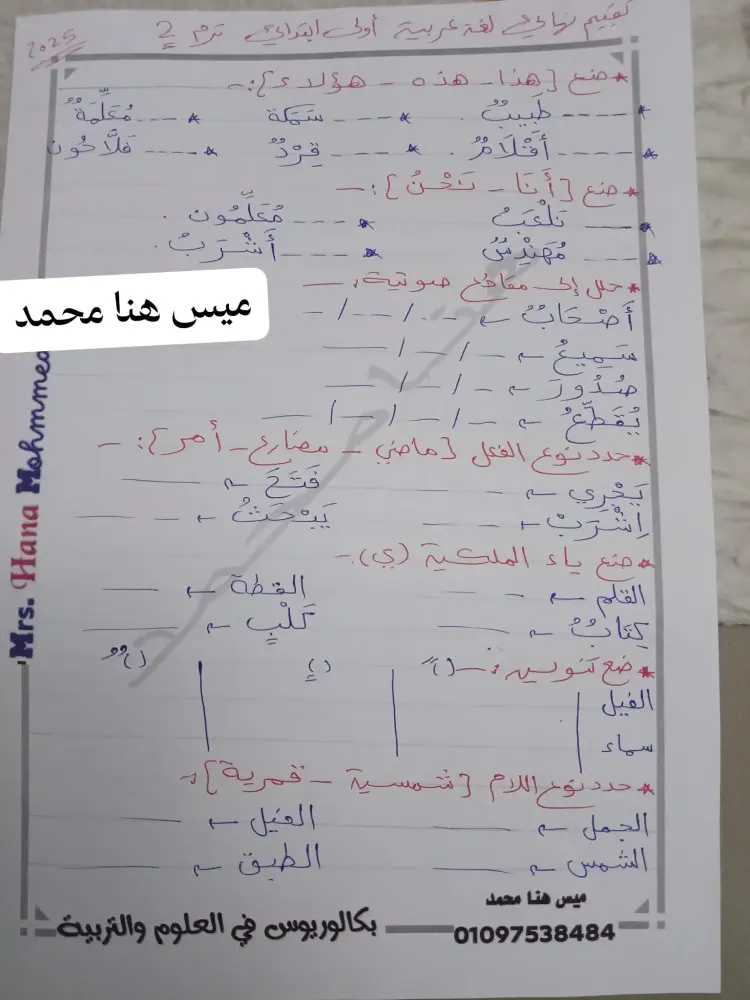 تقييم نهائي لغة عربية أولى ابتدائي ترم 2
2025
* ضع [هذا - هذه - هؤلاء]:-
* ---- طَبِيبٌ. * ---- سَمَكة * ---- مُعَلِّمَةٌ
* ---- أَقْلَامٌ. * ---- قِرْدٌ * ---- فَلَّاحُون
* ضع [أَنَا - نَحْنُ]:-
* ---- نَلْعَبُ * ---- مُعَلِّمُون.
* ---- مُهَنْدِسٌ * ---- أَشْرَبُ.
* حلل إلى مقاطع صوتية:-
أَصْحَابٌ ← --/--/--
سَمِيعٌ ← -/-/--
صُدُورَ ← -/-/--
يُقَطِّعُ ← -/-/-/--
* حدد نوع الفعل [ماضي - مضارع - أمر]:-
يَجْرِي ← ---- فَتَحَ ← ----
اِشْرَبْ ← ---- يَبْحَثُ ← ----
* ضع ياء الملكية (ي).-
القلم ← ---- القطة ← ----
كِتَابٌ ← ---- كَلْبٍ ← ----
* ضع تنوين:- (ً) (ٍ) (ٌ)
الفيل
سماء
* حدد نوع اللام [شمسية - قمرية]:-
الجمل ← ---- الفيل ← ----
الشمس ← ---- الطبق ← ----
ميس هنا محمد
Mrs. Hana Mohmmed
ميس هنا محمد
01097538484
بكالوريوس في العلوم والتربية